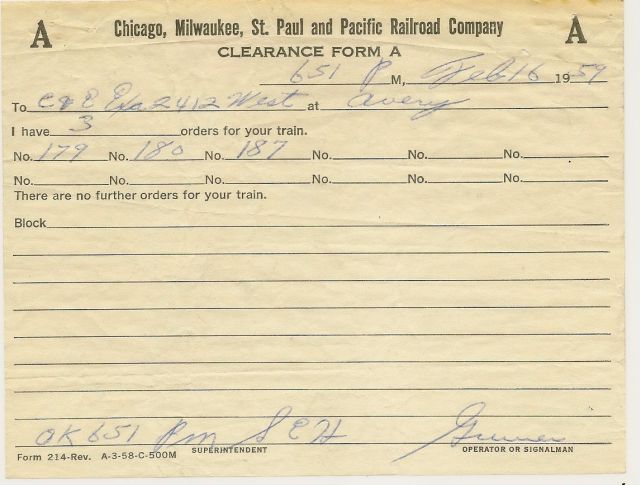 A Chicago, Milwaukee, St. Paul and Pacific Railroad Company A
CLEARANCE FORM A
651 P M, Feb 16 1959
To C & E Exa 2412 West at Avery
I have 3 orders for your train.
No. 179 No. 180 No. 187 No. No. No.
No. No. No. No. No. No.
There are no further orders for your train.
Block
OK 651 Pm S E H
SUPERINTENDENT OPERATOR OR SIGNALMAN
Form 214-Rev. A-3-58-C-500M